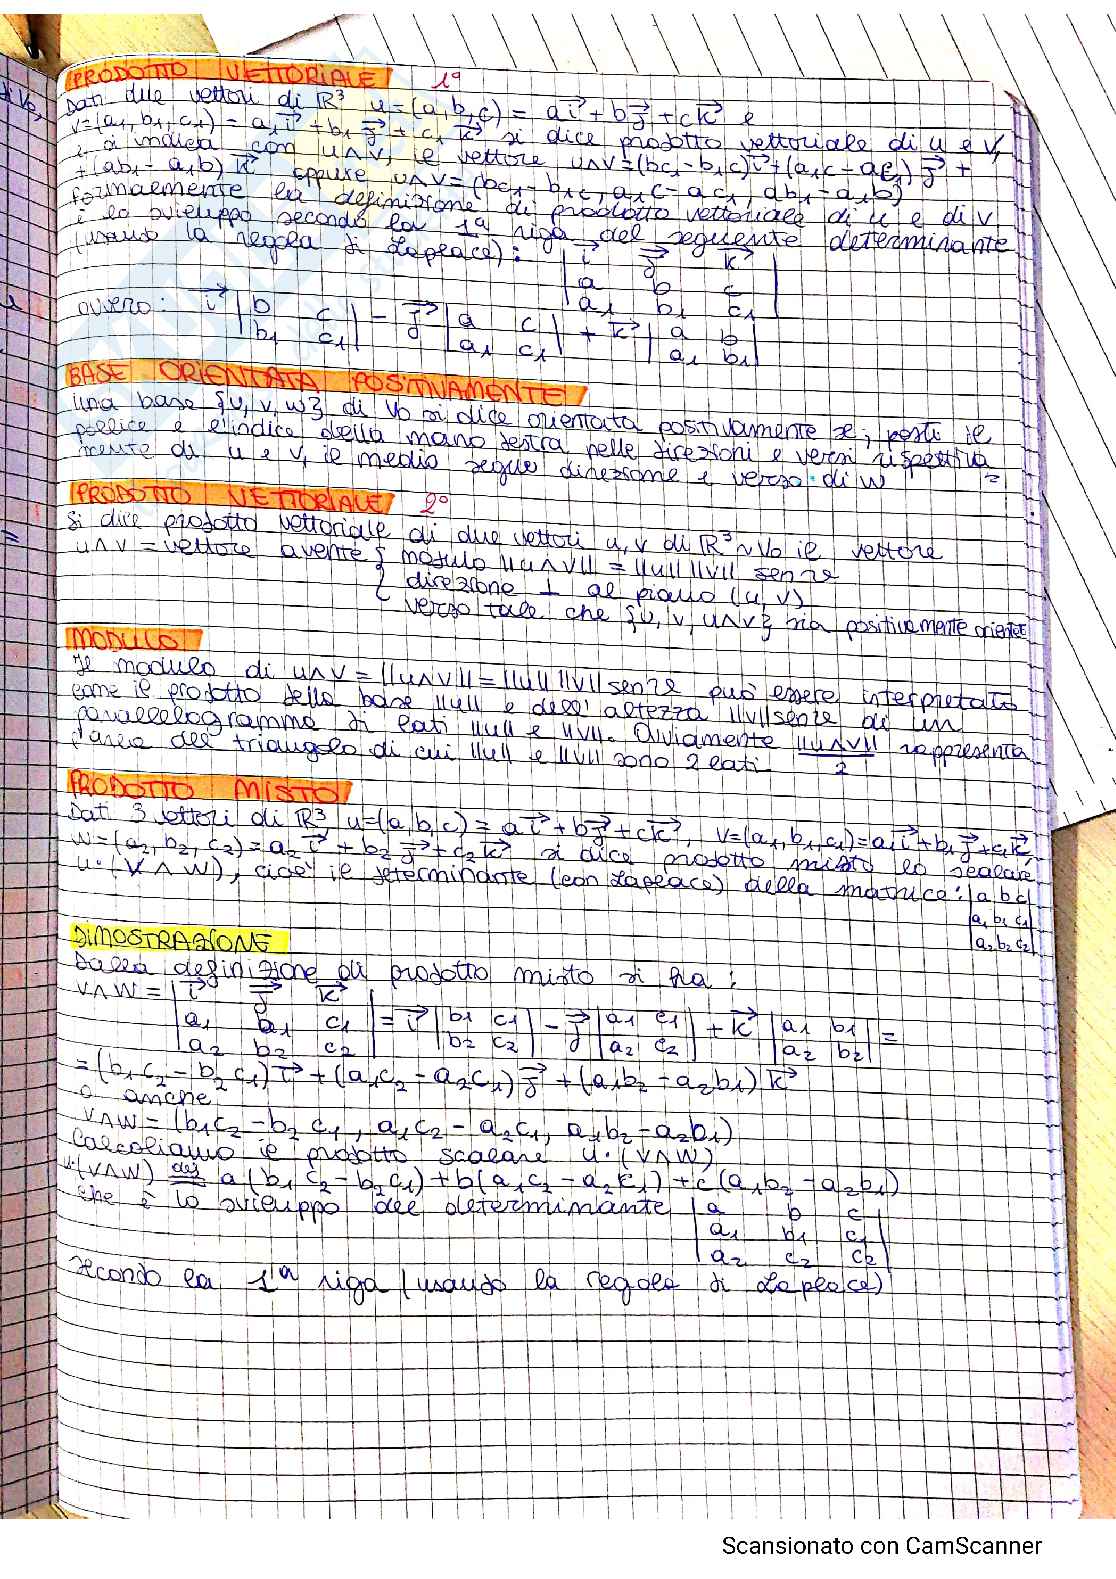 PRODOTTO VETTORIALE 1°
Dati due vettori di ℝ³ u=(a,b,c) = ai⃗+bj⃗+ck⃗ e
v=(a₁,b₁,c₁) = a₁i⃗+b₁j⃗+c₁k⃗ si dice prodotto vettoriale di u e v,
e si indica con u∧v, il vettore u∧v=(bc₁-b₁c)i⃗+(a₁c-ac₁)j⃗+
+(ab₁-a₁b)k⃗ oppure u∧v=(bc₁-b₁c, a₁c-ac₁, ab₁-a₁b)
formalmente la definizione di prodotto vettoriale di u e di v
è lo sviluppo secondo la 1ª riga del seguente determinante
(usando la regola di Laplace): |i⃗ j⃗ k⃗|
|a b c|
|a₁ b₁ c₁|
ovvero: i⃗ |b c| - j⃗ |a c| + k⃗ |a b|
|b₁ c₁| |a₁ c₁| |a₁ b₁|
BASE ORIENTATA POSITIVAMENTE
Una base {u,v,w} di V₀ si dice orientata positivamente se, posti il
pollice e l'indice della mano destra nelle direzioni e versi rispettiva=
mente di u e v, il medio segue direzione e verso di w
PRODOTTO VETTORIALE 2°
Si dice prodotto vettoriale di due vettori u,v di ℝ³~V₀ il vettore
u∧v = vettore avente { modulo ||u∧v|| = ||u|| ||v|| sen
direzione ⊥ al piano (u,v)
verso tale che {u,v,u∧v} sia positivamente orient
MODULO
Il modulo di u∧v = ||u∧v|| = ||u|| ||v|| sen può essere interpretato
come il prodotto della base ||u|| e dell'altezza ||v|| sen di un
parallelogramma di lati ||u|| e ||v||. Ovviamente ||u∧v||/2 rappresenta
l'area del triangolo di cui ||u|| e ||v|| sono 2 lati.
PRODOTTO MISTO
Dati 3 vettori di ℝ³ u=(a,b,c) = ai⃗+bj⃗+ck⃗, v=(a₁,b₁,c₁)=a₁i⃗+b₁j⃗+c₁k⃗,
w=(a₂,b₂,c₂)=a₂i⃗+b₂j⃗+c₂k⃗ si dice prodotto misto lo scalare
u·(v∧w), cioè il determinante (con Laplace) della matrice: |a b c|
|a₁ b₁ c₁|
|a₂ b₂ c₂|
DIMOSTRAZIONE
Dalla definizione di prodotto misto si ha:
v∧w = |i⃗ j⃗ k⃗|
|a₁ b₁ c₁| = i⃗ |b₁ c₁| - j⃗ |a₁ c₁| + k⃗ |a₁ b₁| =
|a₂ b₂ c₂| |b₂ c₂| |a₂ c₂| |a₂ b₂|
=(b₁c₂-b₂c₁)i⃗+(a₁c₂-a₂c₁)j⃗+(a₁b₂-a₂b₁)k⃗
o anche
v∧w = (b₁c₂-b₂c₁, a₁c₂-a₂c₁, a₁b₂-a₂b₁)
Calcoliamo il prodotto scalare u·(v∧w)
u·(v∧w) =def a(b₁c₂-b₂c₁)+b(a₁c₂-a₂c₁)+c(a₁b₂-a₂b₁)
che è lo sviluppo del determinante |a b c|
|a₁ b₁ c₁|
|a₂ c₂ c₂|
secondo la 1ª riga (usando la regola di Laplace)
Scansionato con CamScanner